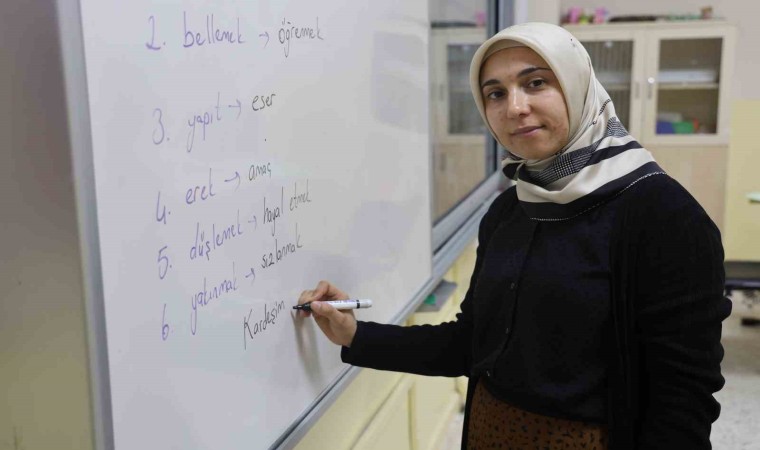 2. bellemek → öğremek
3. yapıt → eser
4. erek → amaç
5. düşlemek → hayal etmek
6. yakınmak → sızlanmak
Kardeşim